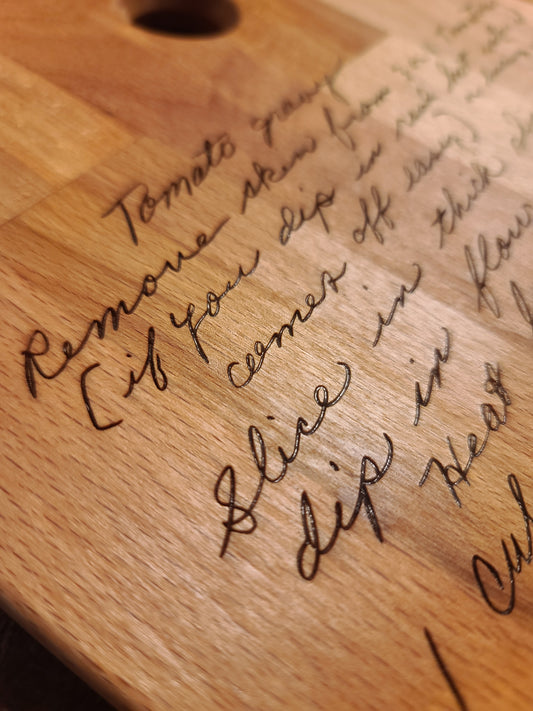 Tomato gravy
Remove skin from
(if you dip in real hot
comes off easy)
Slice in thick
dip in flour
Heat